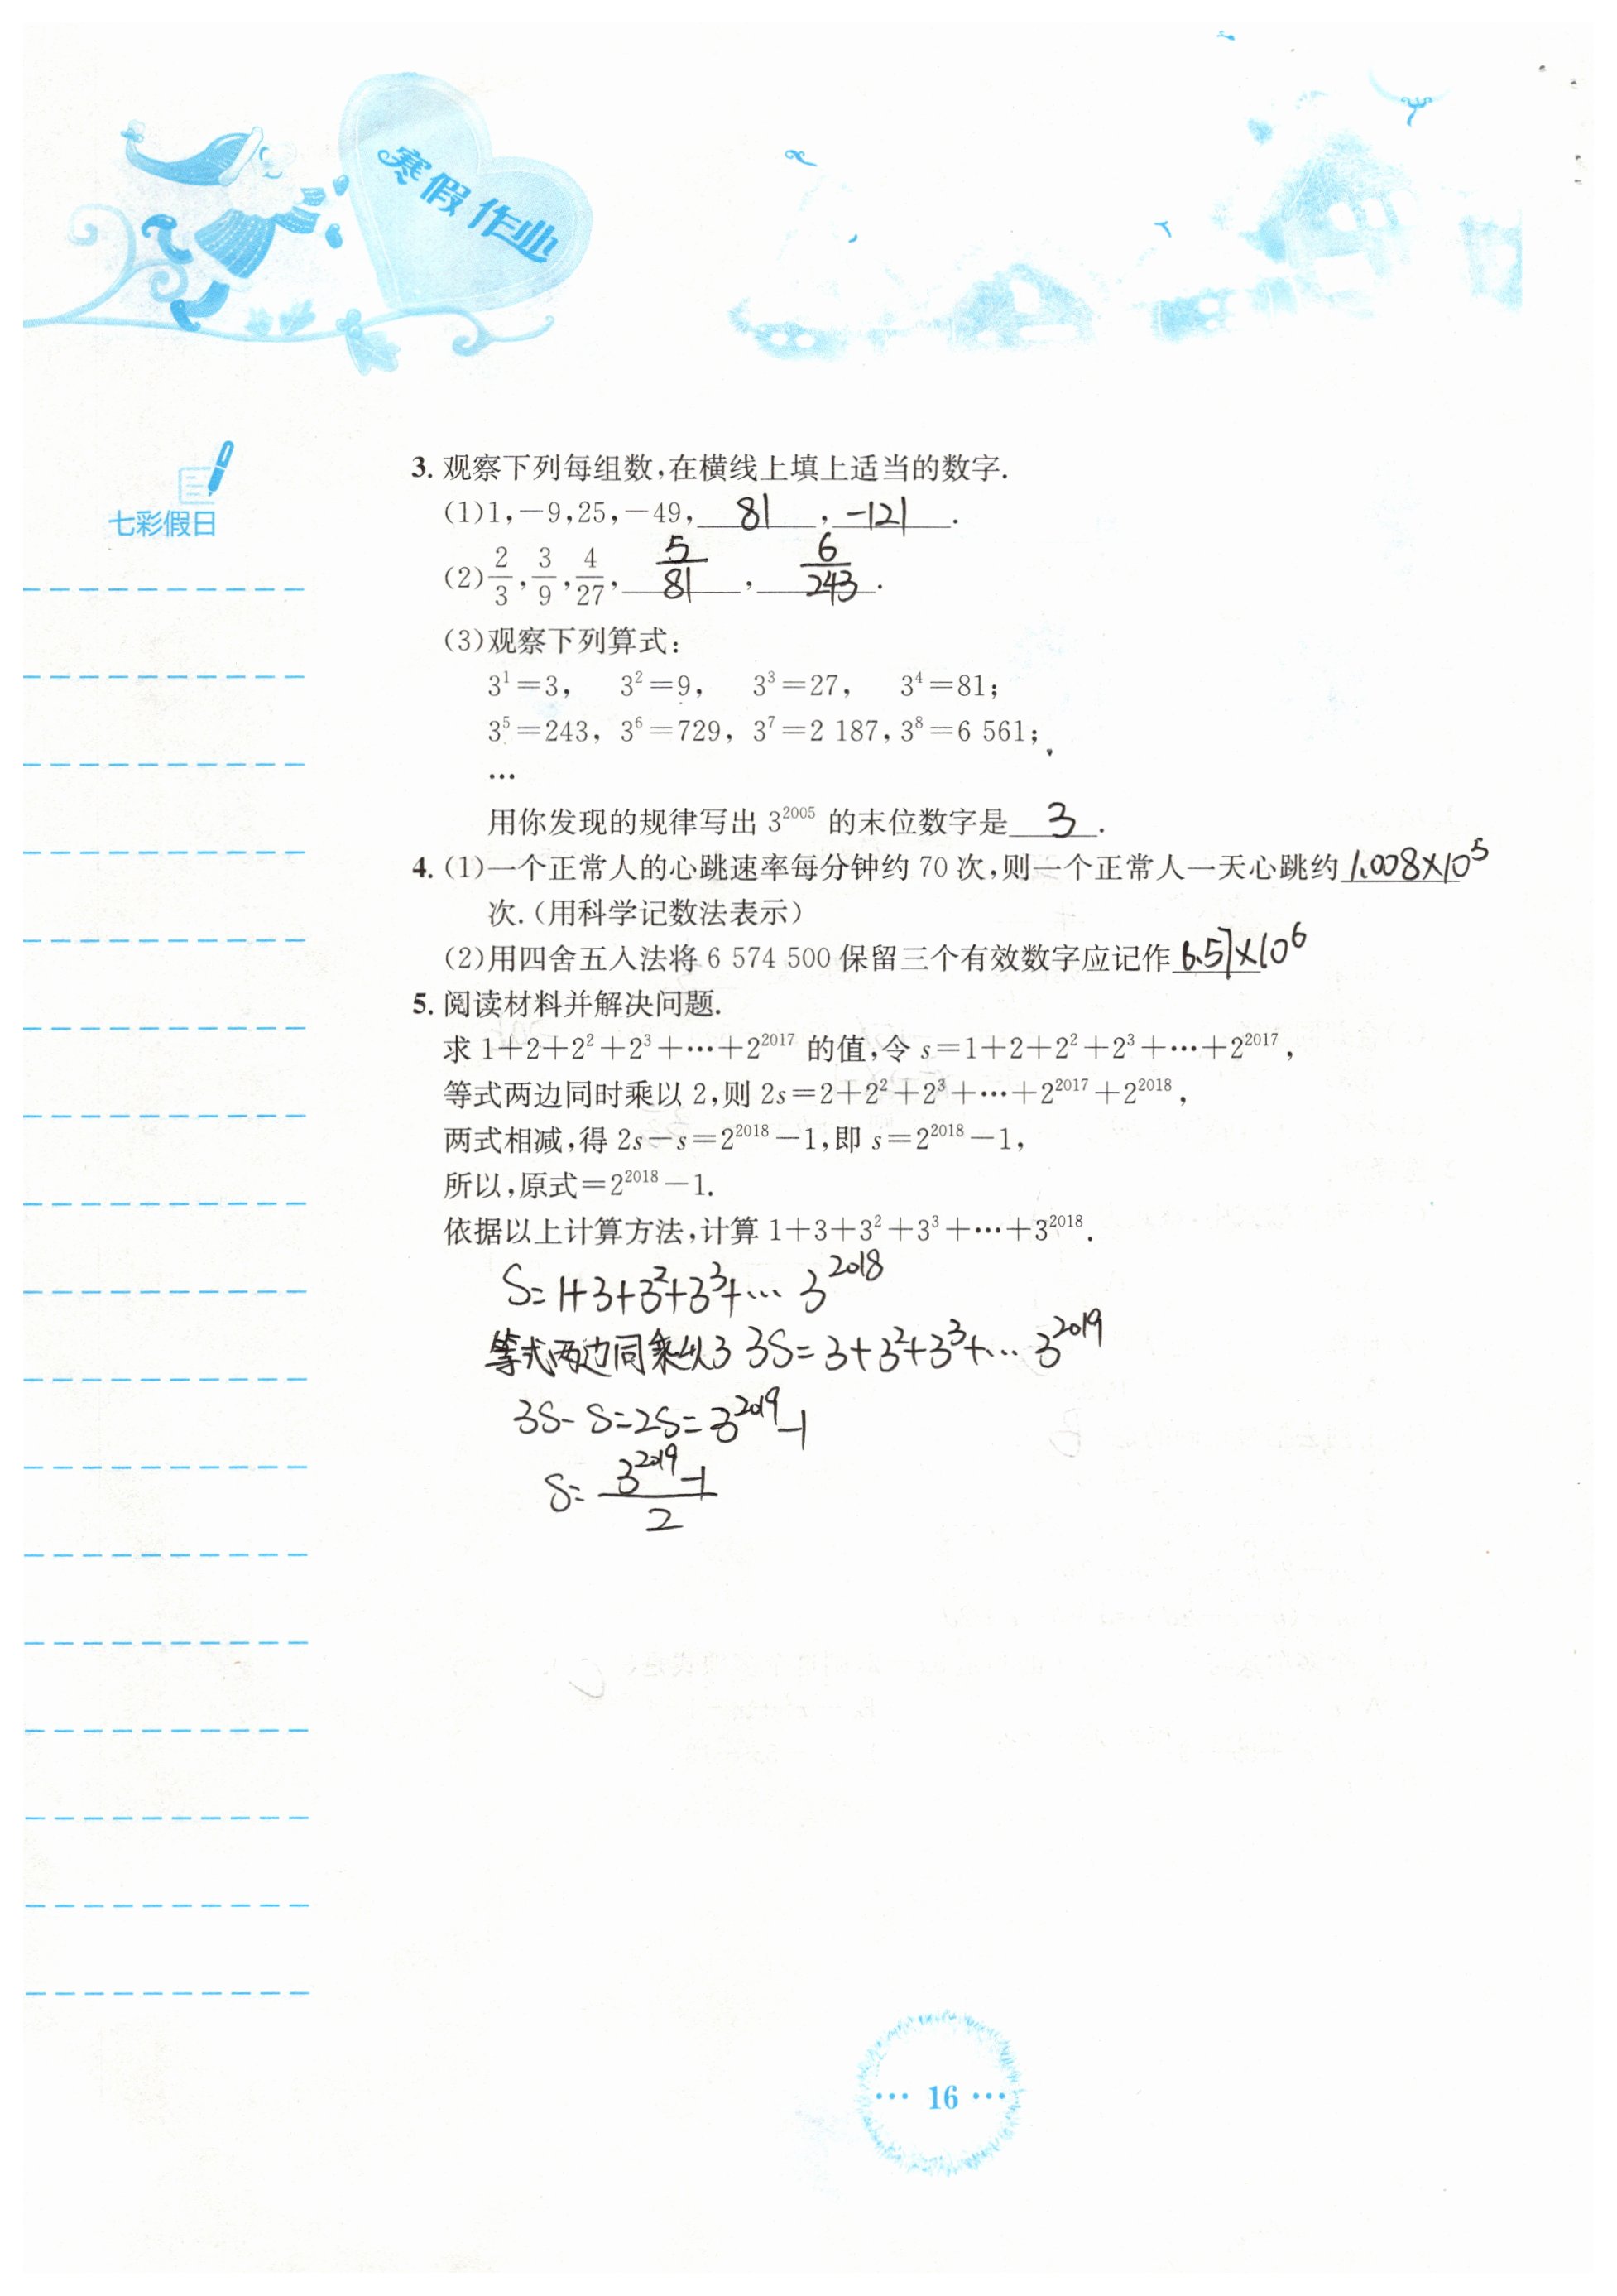 寒假作业
七彩假日
3. 观察下列每组数,在横线上填上适当的数字.
(1)1,-9,25,-49, 81 , -121 .
(2)2/3,3/9,4/27, 5/81 , 6/243 .
(3)观察下列算式:
3¹=3, 3²=9, 3³=27, 3⁴=81;
3⁵=243, 3⁶=729, 3⁷=2 187, 3⁸=6 561;
…
用你发现的规律写出 3²⁰⁰⁵ 的末位数字是 3 .
4. (1)一个正常人的心跳速率每分钟约 70 次,则一个正常人一天心跳约 1.008×10⁵
次.(用科学记数法表示)
(2)用四舍五入法将 6 574 500 保留三个有效数字应记作 6.57×10⁶
5. 阅读材料并解决问题.
求 1+2+2²+2³+…+2²⁰¹⁷ 的值,令 s=1+2+2²+2³+…+2²⁰¹⁷,
等式两边同时乘以 2,则 2s=2+2²+2³+…+2²⁰¹⁷+2²⁰¹⁸,
两式相减,得 2s-s=2²⁰¹⁸-1,即 s=2²⁰¹⁸-1,
所以,原式=2²⁰¹⁸-1.
依据以上计算方法,计算 1+3+3²+3³+…+3²⁰¹⁸.
S=1+3+3²+3³+… 3²⁰¹⁸
等式两边同乘以3 3S=3+3²+3³+… 3²⁰¹⁹
3S-S=2S=3²⁰¹⁹-1
S=(3²⁰¹⁹-1)/2
… 16 …